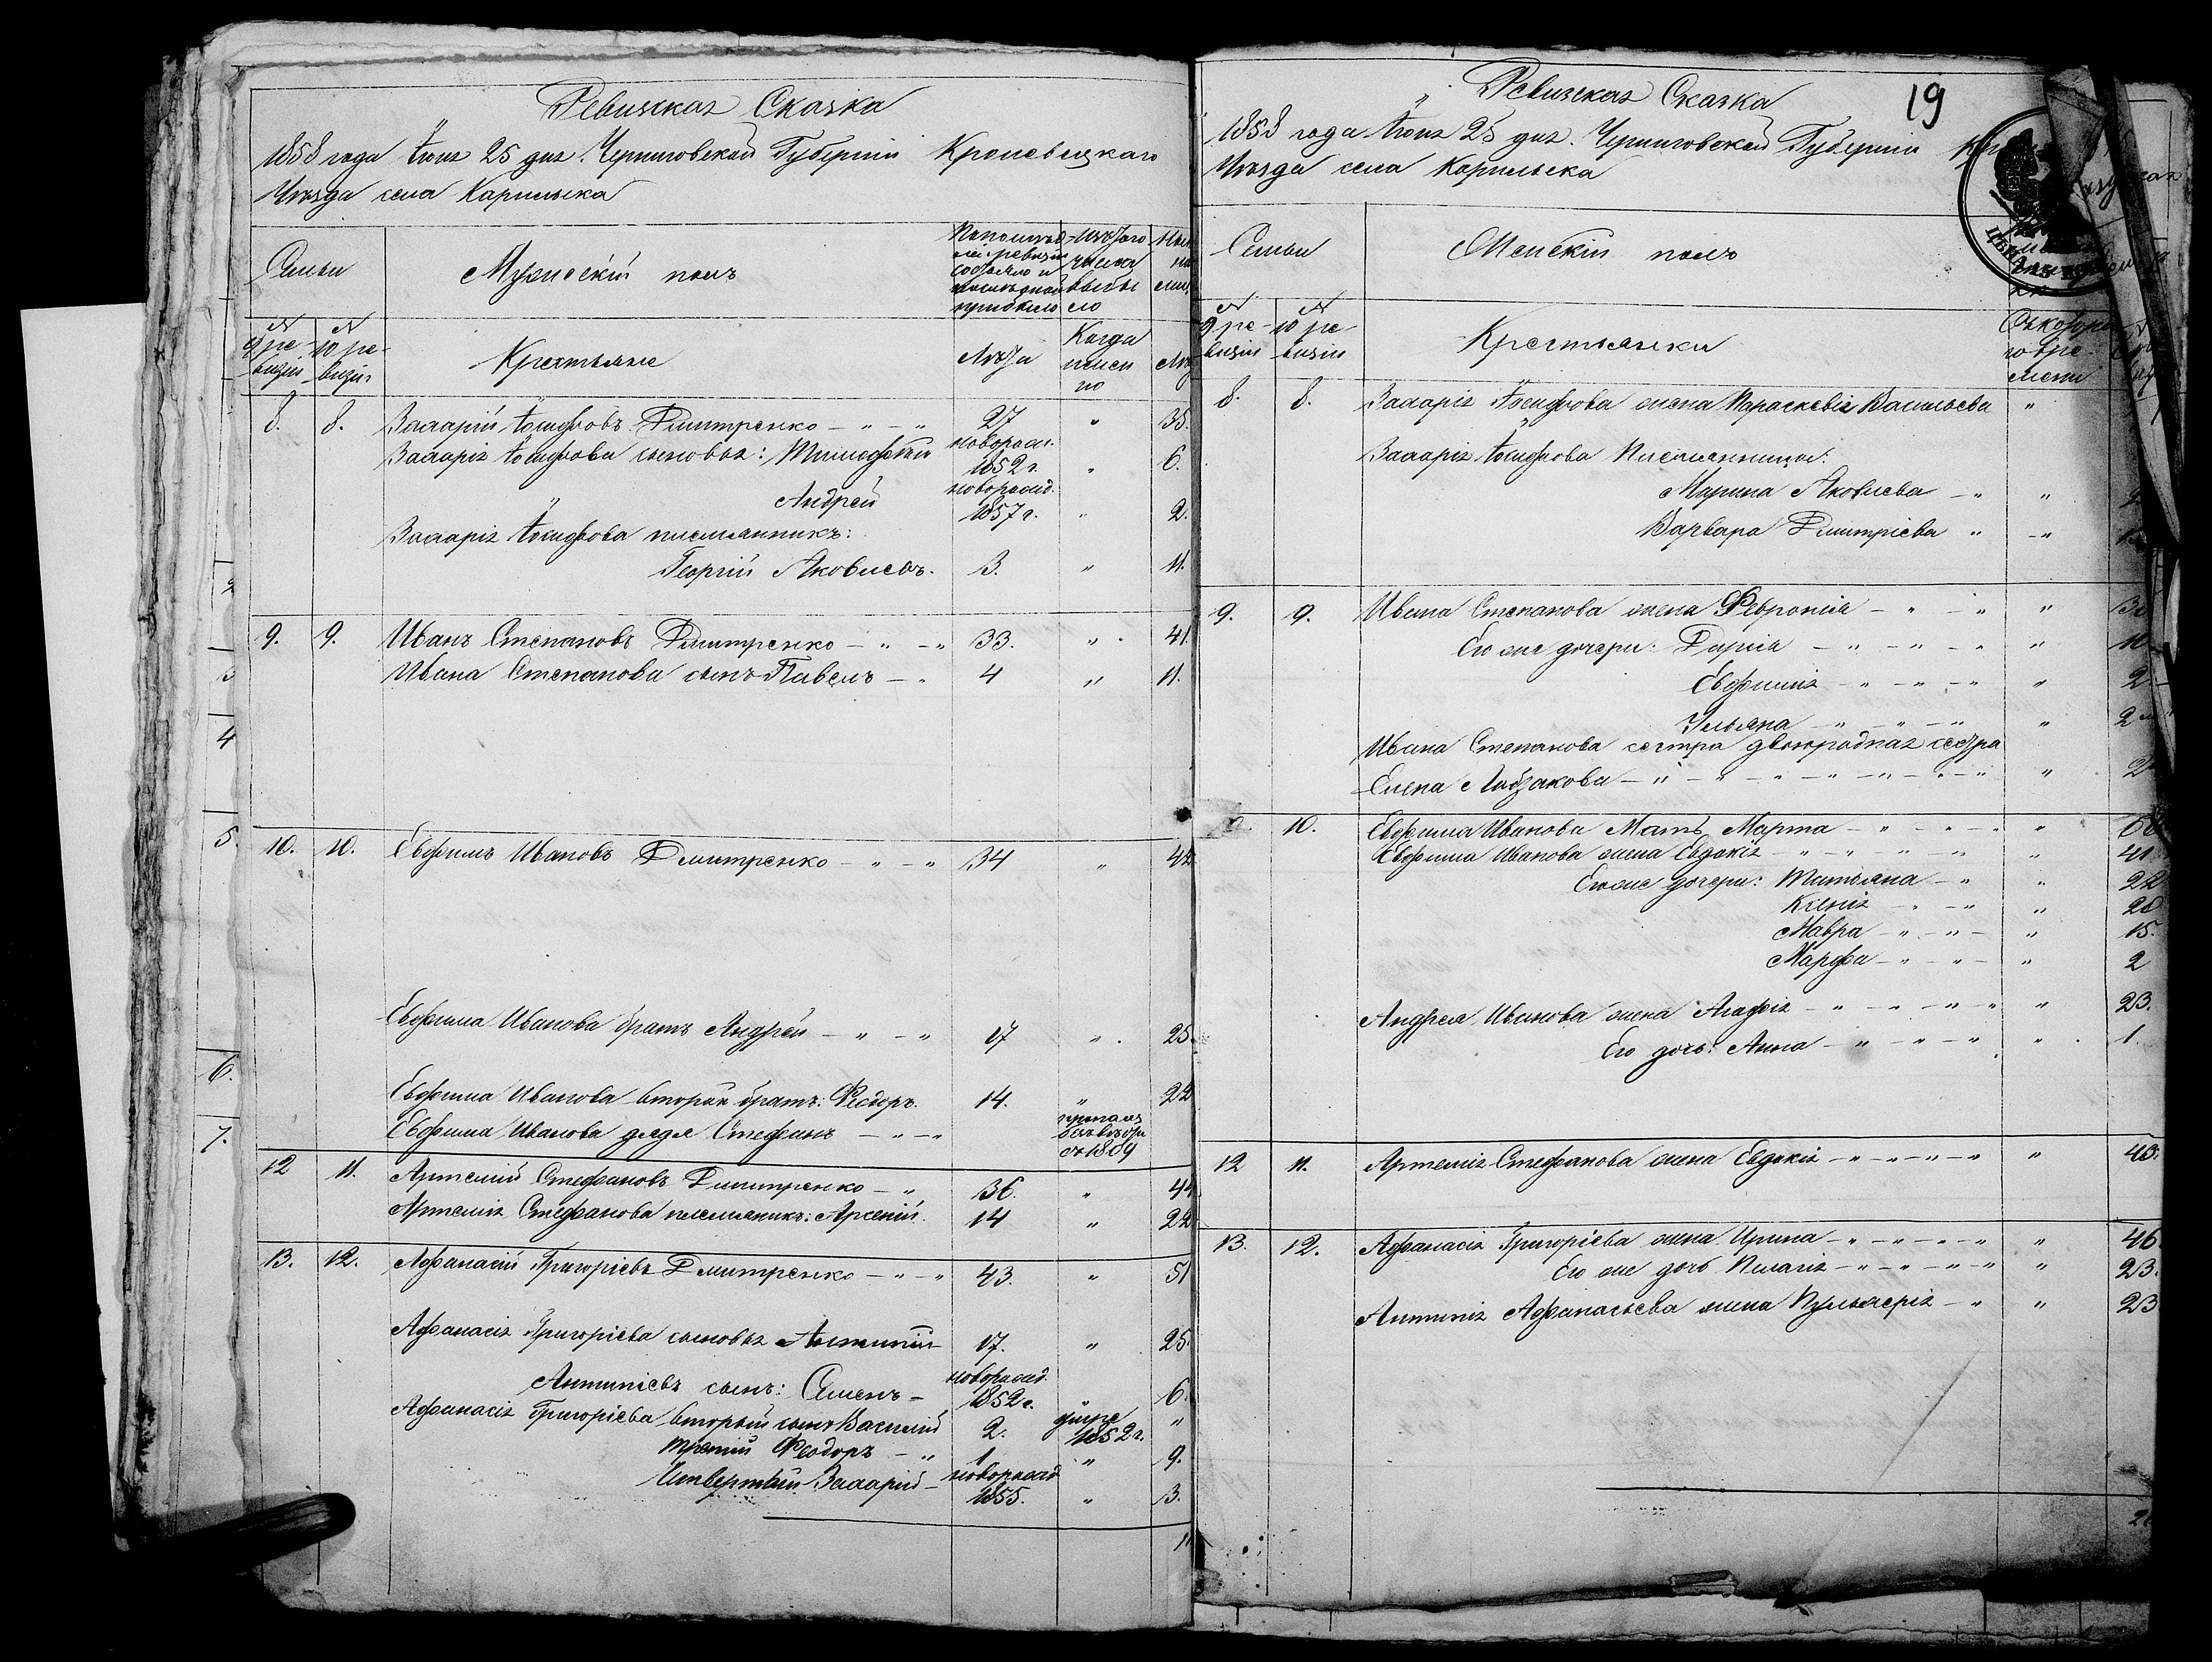 Ревизская Сказка
1858 года Іюня 25 дня. Черниговской Губерніи Кролевецкаго
Уѣзда села Карильска
Семьи
Мужескій полъ
По послѣд
ней ревизіи
состояло и
послѣ оной
прибыло
Изъ того
числа
выбы
ло
№
9 ре-
визіи
№
10 ре-
визіи
Крестьяне
Лѣта
Когда
имен
но
8. 8. Захарій Іосифовъ Дмитренко — " — " 27 " 35.
Захарія Іосифова сыновья: Тимофей новорожд. 1852 г. " 6.
Андрей новорожд. 1857 г. " 2.
Захарія Іосифова племянникъ:
Георгій Яковлевъ. 3. " 11.
9. 9. Иванъ Степановъ Дмитренко — " — " 33. " 41.
Ивана Степанова сынъ Павелъ — " 4 " 11.
10. 10. Евфимъ Ивановъ Дмитренко — " — " 34 " 42
Евфима Иванова братъ Андрей — " — " 17 " 25.
Евфима Иванова вторый братъ: Феодоръ. 14. " 22
Евфима Иванова дядя Стефанъ — " — " пропалъ безъ вѣсти съ 1809
12 11. Артемій Стефановъ Дмитренко — " 36. " 44
Артемія Стефанова племяникъ: Арсеній. 14 " 22
13. 12. Афанасій Григорьевъ Дмитренко — " — " 43. " 51
Афанасія Григорьева сыновья Антипій 17. " 25.
Антипіевъ сынъ: Семенъ — новорожд. 1852 г. " 6.
Афанасія Григорьева вторый сынъ Василій 2. умре 1852 г. "
третій Феодоръ — " 1 " 9.
Четвертый Захарій — новорожд 1855. " 3.
19
Ревизская Сказка
1858 года Іюня 25 дня. Черниговской Губерніи
Уѣзда села Карильска
Семьи
Женскій полъ
№
9 ре-
визіи
№
10 ре-
визіи
Крестьянки
8. 8. Захарія Іосифова жена Параскевія Васильева "
Захарія Іосифова Племянницы:
Марина Яковлева — " "
Варвара Дмитріева " — "
9. 9. Ивана Степанова жена Феврония — " — " "
Его же дочери: Дарія — " — " — " "
Евфимія — " — " — " " 2
Ульяна — " — " — " " 2
Ивана Степанова сестра двоюродная сестра
Елена — " — " — " — " — " — " — " " 2
10. Евфима Иванова Мать Марта — " — " — " "
Евфима Иванова жена Евдокія — " — " — " — " " 41
Его же дочери: Татьяна — " " 22
Ксенія — " — " " 20
Мавра — " — " — " 15.
Марфа — " — " — " 2
Андрея Иванова жена Агафія — " — " — " — " " 23.
Его дочь: Анна — " — " — " — " " 1.
12 11. Артемія Стефанова жена Евдокія — " — " — " — " " 43.
13. 12. Афанасія Григорьева жена Ирина — " — " — " — " " 46.
Его же дочь Пелагія — " — " — " — " " 23.
Антипія Афанасьева жена — " " 23